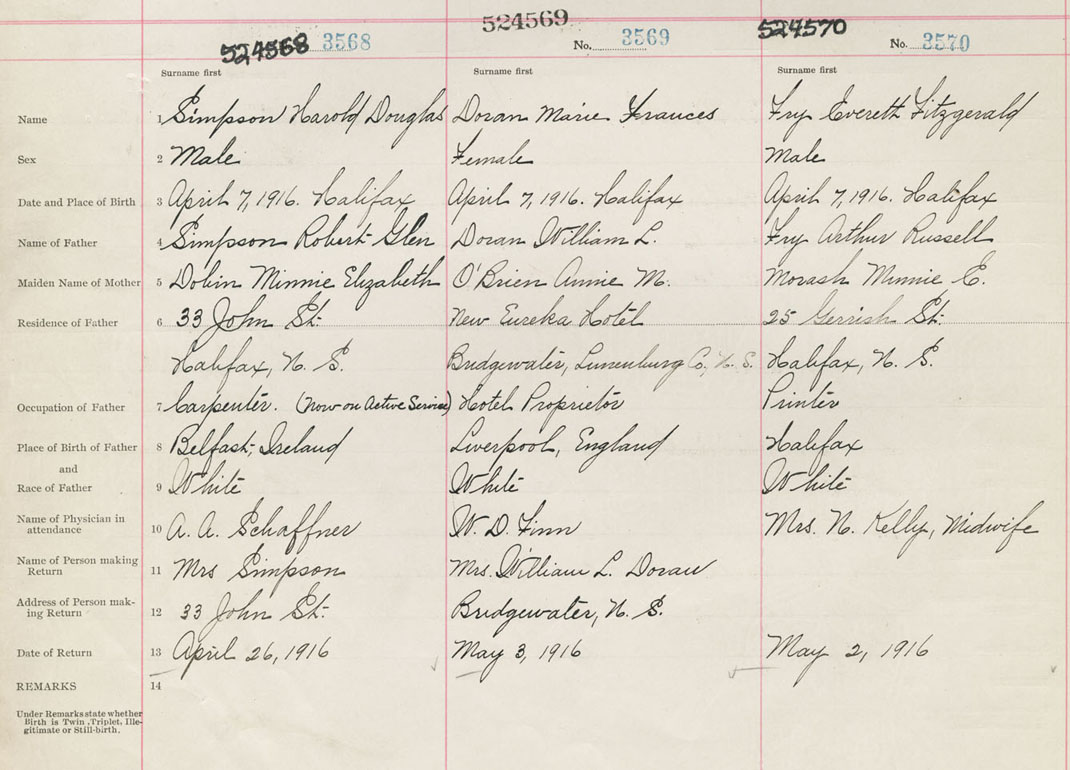 524568 3568 524569 No. 3569 524570 No. 3570
Surname first Surname first Surname first
Name 1 Simpson Harold Douglas Doran Marie Frances Fry Everett Fitzgerald
Sex 2 Male Female Male
Date and Place of Birth 3 April 7, 1916. Halifax April 7, 1916. Halifax April 7, 1916. Halifax
Name of Father 4 Simpson Robert Glen Doran William L. Fry Arthur Russell
Maiden Name of Mother 5 Minnie Elizabeth O'Brien Annie M. Morash Minnie E.
Residence of Father 6 33 John St. New Eureka Hotel 25 Gerrish St.
Halifax, N. S. Bridgewater, Lunenburg Co, N. S. Halifax, N. S.
Occupation of Father 7 Carpenter. (Now on Active Service) Hotel Proprietor Printer
Place of Birth of Father 8 Belfast, Ireland Liverpool, England Halifax
and
Race of Father 9 White White White
Name of Physician in attendance 10 A. A. Schaffner W. D. Finn Mrs. N. Kelly, Midwife
Name of Person making Return 11 Mrs Simpson Mrs. William L. Doran
Address of Person mak-
ing Return 12 33 John St. Bridgewater, N. S.
Date of Return 13 April 26, 1916 May 3, 1916 May 2, 1916
REMARKS 14
Under Remarks state whether
Birth is Twin, Triplet, Ille-
gitimate or Still-birth.